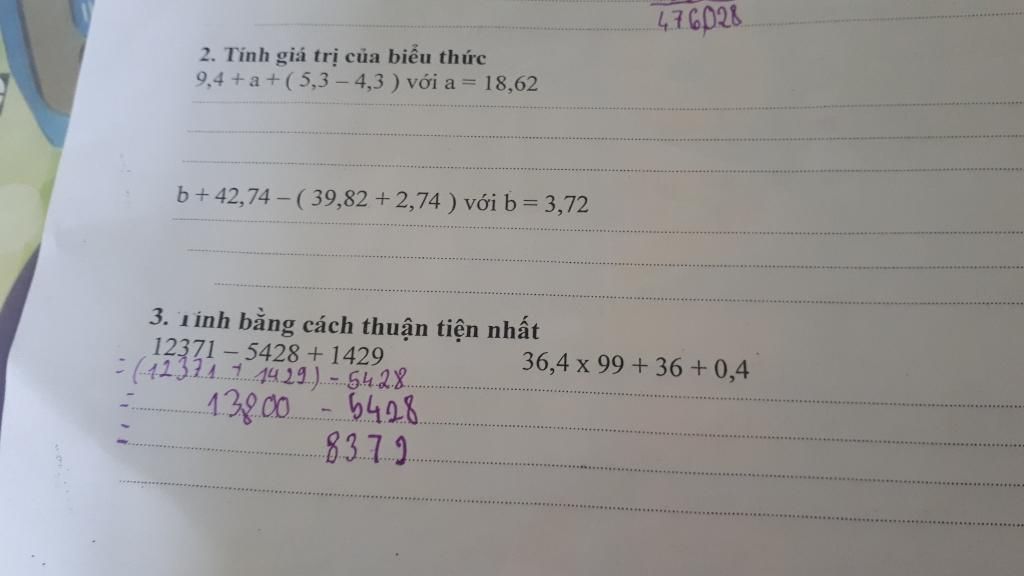 476,028
2. Tính giá trị của biểu thức
9,4 + a + ( 5,3 – 4,3 ) với a = 18,62
b + 42,74 – ( 39,82 + 2,74 ) với b = 3,72
3. Tính bằng cách thuận tiện nhất
12371 – 5428 + 1429 36,4 x 99 + 36 + 0,4
= (12371 + 1429) - 5428
= 13800 - 5428
= 8379